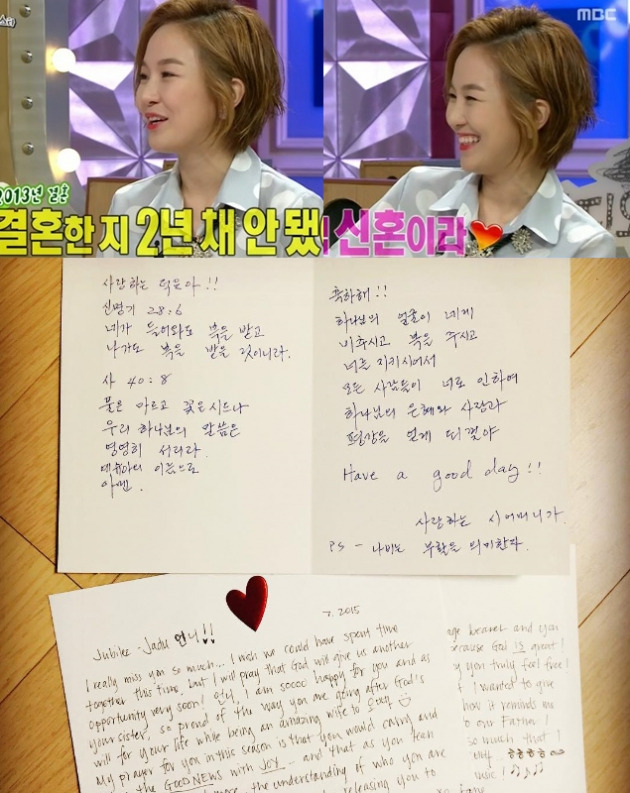 MBC
2013년 결혼
결혼한 지 2년 채 안 됐
신혼이라
사랑하는 덕은아!!
신명기 28:6
네가 들어와도 복을 받고
나가도 복을 받을 것이니라.
사 40:8
풀은 마르고 꽃은 시드나
우리 하나님의 말씀은
영영히 서리라.
예슈아의 이름으로
아멘.
축하해!!
하나님의 얼굴이 네게
비추시고 복을 주시고
너를 지키시어서
모든 사람들이 너로 인하여
하나님의 은혜와 사랑과
평강을 얻게 되길
Have a good day!!
사랑하는 시어머니가.
PS - 나비는 부활을 의미한다.
7. 2015
Jubilee - Jadu 언니!!
I really miss you so much... I wish we could have spent time
together this time, but I will pray that God will give us another
opportunity very soon! 언니, I am soooo happy for you and as
your sister, so proud of the way you are going after God's
will for your life while being an amazing wife to
My prayer for you in this season is that you would carry and
the GOOD NEWS with JOY - and that as you
the understanding of who you are
releasing you to
age bearer and you
because God IS great!
you truly feel free!
I wanted to give
how it reminds me
to our Father!
so much that I
music!